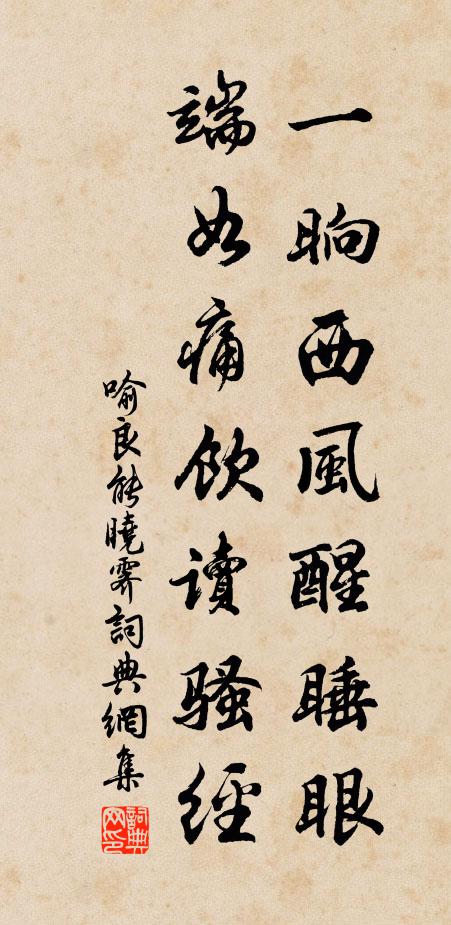 一晌西風醒睡眼
端如痛飲讀騷經
喻良能曉霽詞典網集
詞典网印